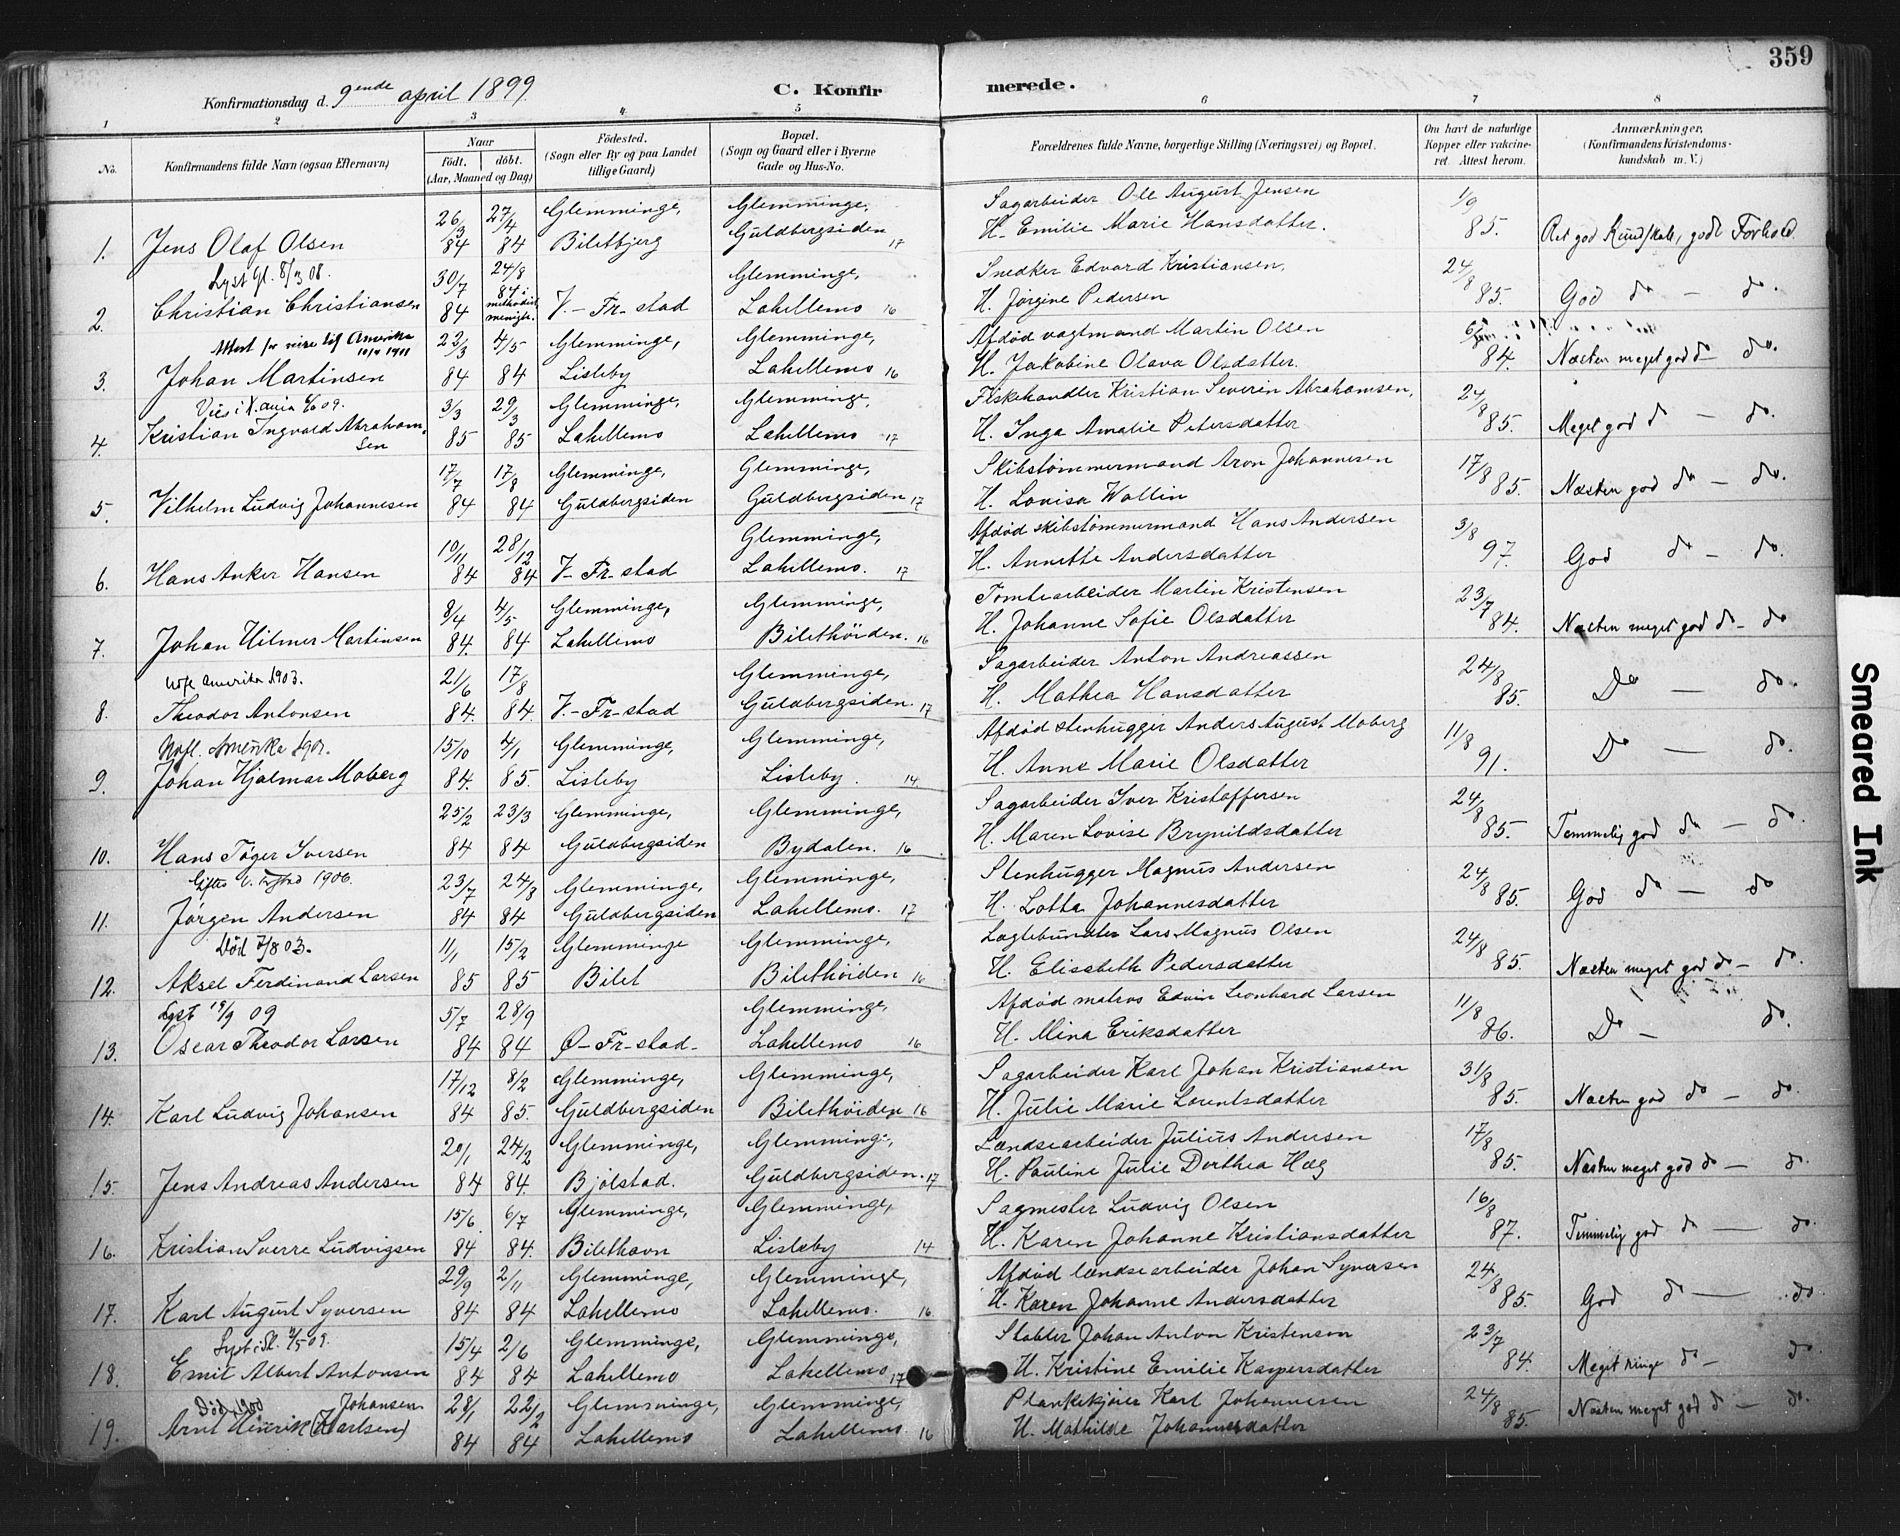 359
Konfirmationsdag d. 9ende april 1899
C. Konfirmerede.
1 2 3 4 5 6 7 8
No.
Konfirmandens fulde Navn (ogsaa Efternavn)
Naar
født. døbt.
(Aar, Maaned og Dag)
Fødested.
(Sogn eller By og paa Landet
tillige Gaard)
Bopæl.
(Sogn og Gaard eller i Byerne
Gade og Hus-No.
Forældrenes fulde Navne, borgerlige Stilling (Næringsvei) og Bopæl.
Om havt de naturlige
Kopper eller vakcine-
ret. Attest herom.
Anmærkninger,
(Konfirmandens Kristendoms-
kundskab m. V.)
26/3 27/4 Glemminge, Glemminge, Sagarbeider Ole August Jensen 1/9
1. Jens Olaf Olsen 84 84 Biletbjerg Guldbergsiden 17 H. Emilie Marie Hansdatter. 85. Ret god Kundskab, godt Forhold.
Lyst Gl. 8/3 08. 30/7 24/8 84 i Glemminge, Snedker Edvard Kristiansen, 24/8
2. Christian Christiansen 84 methodist menigh. V.-Fr-stad Lahellemo 16 H. Jørgine Pedersen 85. God do - do.
Attest for reise til Amerika 10/4 1911 23/3 4/5 Glemminge, Glemminge, Afdød vagtmand Martin Olsen
3. Johan Martinsen 84 84 Lisleby Lahellemo 16 H. Jakobine Olava Olsdatter. 84. Næsten meget god do do.
3/3 29/3 Glemminge, Glemminge, Fiskehandler Kristian Severin Abrahamsen, 24/8
4. Kristian Ingvald Abrahamsen 85 85 Lahellemo Lahellemo 17 H. Inga Amalie Petersdatter 85. Meget god do - do.
17/7 17/8 Glemminge, Glemminge, Skibstømmermand Aron Johannesen 17/8
5. Vilhelm Ludvig Johannesen 84 84 Guldbergsiden Guldbergsiden 17 H. Lovisa Wallin 85. Næsten god do - do.
10/11 28/12 Glemminge, Afdød skibstømmermand Hans Andersen 3/8
6. Hans Anker Hansen 84 84 V-Fr-stad Lahellemo. 17 H. Annette Andersdatter 97. God do - do.
8/4 4/5 Glemminge, Glemminge, Tomtearbeider Martin Kristensen 23/7
7. Johan Hilmer Martinsen 84. 84 Lahellemo Bilethöiden. 16 H. Johanne Sofie Olsdatter 84. Næsten meget god do - do
Udfl. Amerika 1903. 21/6 17/8 Glemminge, Sagarbeider Anton Andreassen 24/8
8. Theodor Antonsen 84. 84 V.-Fr-stad Guldbergsiden. 17 H. Mathea Hansdatter 85. Do - do.
15/10 4/1 Glemminge, Glemminge, Afdød stenhugger Anders August Moberg 11/8
9. Johan Hjalmar Moberg 84. 85. Lisleby Lisleby. 14 H. Anne Marie Olsdatter 91. Do - do.
25/2 23/3 Glemminge, Glemminge, Sagarbeider Iver Kristoffersen 24/8
10. Hans Töger Iversen 84 84 Guldbergsiden Bydalen. 16 H. Maren Lovise Brynildsdatter 85. Temmelig god do - do.
23/7 24/8 Glemminge, Glemminge, Stenhugger Magnus Andersen 24/8
11. Jørgen Andersen 84 84 Guldbergsiden Lahellemo. 17 H. Lotta Johannesdatter 85. God do - do
Död 7/8 03. 11/1 15/2 Glemminge Glemminge, Lars Magnus Olsen 24/8
12. Aksel Ferdinand Larsen 85 85 Bilet Bilethöiden 16 H. Elisabeth Pedersdatter 85. Næsten meget god do - do.
Lyst 19/9 09 5/7 28/9 Glemminge, Afdød matros Edvin Leonhard Larsen 11/8
13. Oscar Theodor Larsen 84 84 Ø-Fr-stad- Lahellemo 16 H. Mina Eriksdatter 86. Do - do.
17/12 8/2 Glemminge, Glemminge, Sagarbeider Karl Johan Kristiansen 31/8
14. Karl Ludvig Johansen 84 85. Guldbergsiden Bilethöiden 16 H. Julie Marie Lorentsdatter 85. Næsten god do - do.
20/1 24/2 Glemminge, Glemminge, Lændsearbeider Julius Andersen 17/8
15. Jens Andreas Andersen 84 84. Bjölstad. Guldbergsiden. 17 H. Pauline Julie Dorthea Hæg 85. Næsten meget god do - do.
15/6 6/7 Glemminge, Glemminge, Sagmester Ludvig Olsen 16/8
16. Kristian Sverre Ludvigsen 84 84. Bilethavn Lisleby 14 H. Karen Johanne Kristiansdatter 87. Temmelig god do - do.
29/9 2/11 Glemminge, Glemminge, Afdød lændsearbeider Johan Syversen 24/8
17. Karl August Syversen 84 84 Lahellemo Lahellemo. 16 H. Karen Johanne Andersdatter 85. God do - do.
15/4 2/6 Glemminge, Glemminge, Stabler Johan Anton Kristensen 23/7
18. Emil Albert Antonsen 84 84 Lahellemo Lahellemo 17 H. Kristine Emilie Kaspersdatter 84. Meget ringe do - do
Död 1900 Johansen 28/1 22/2 Glemminge, Glemminge, Plankekjører Karl Johannesen 24/8
19. Arnt Henrik (Karlsen) 84 84 Lahellemo Lahellemo 16 H. Mathilde Johannesdatter 85. Næsten meget god do - do.
Smeared Ink